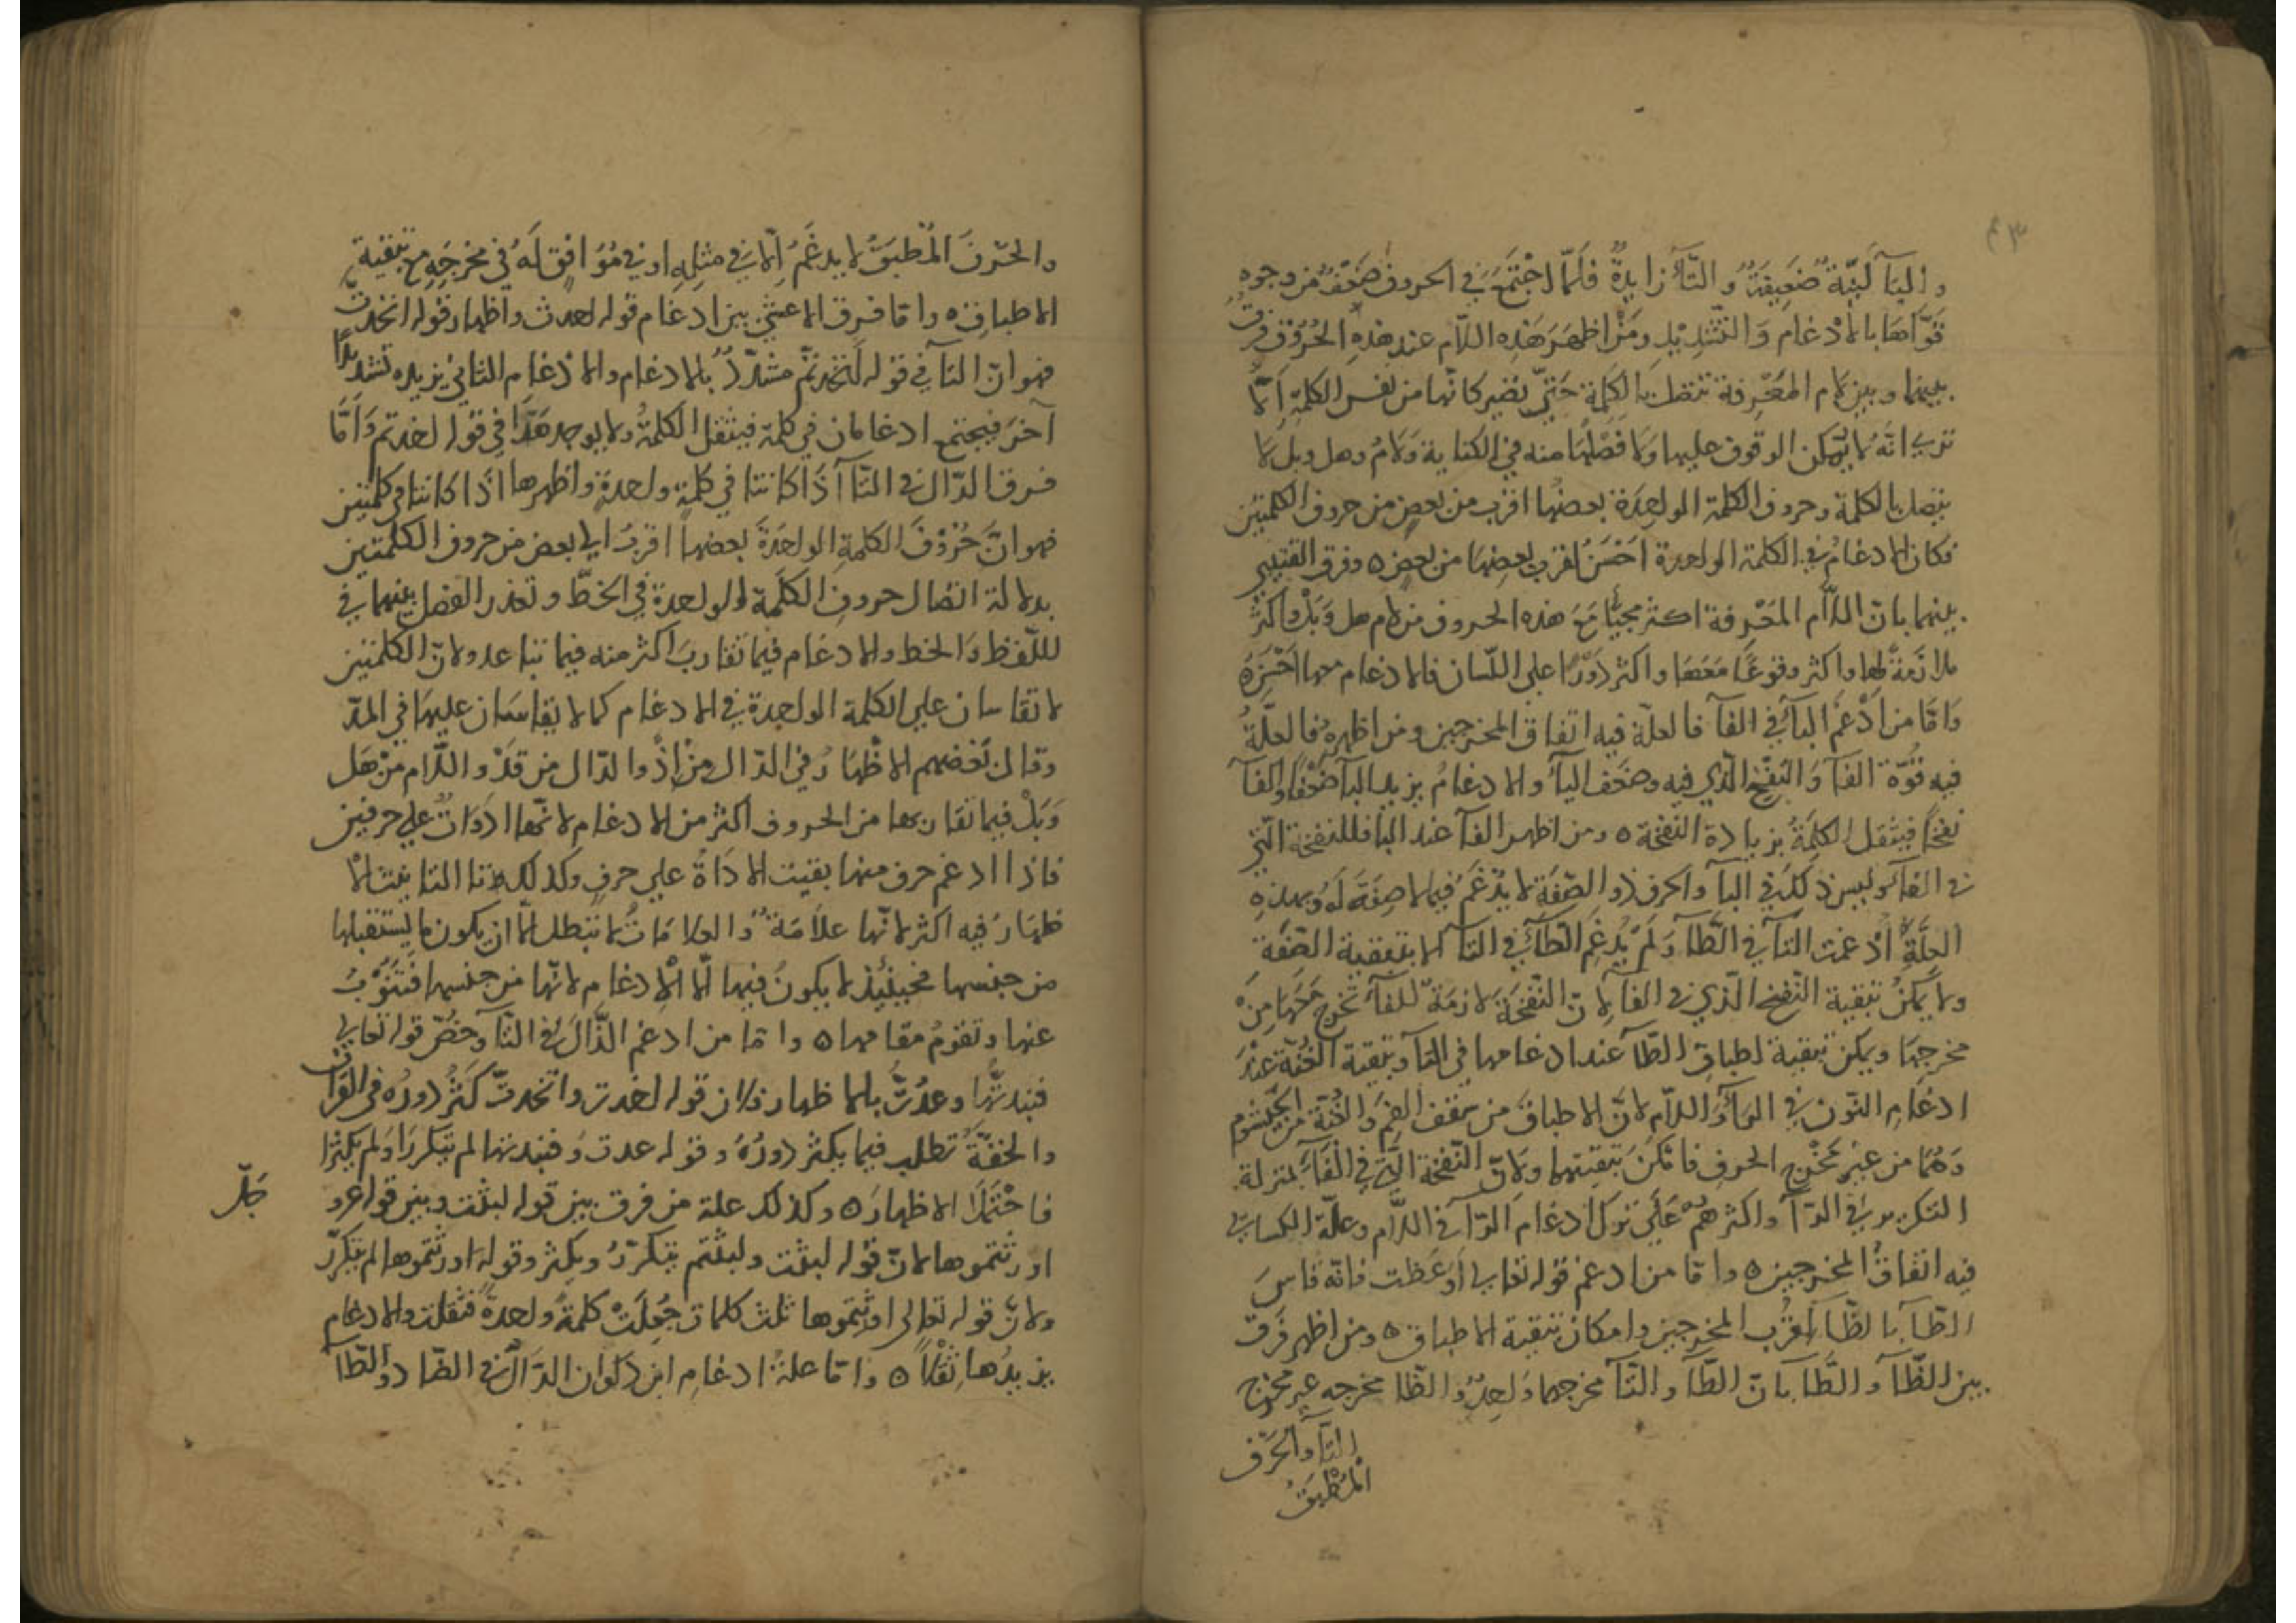 واليآ لينة ضعيفة والتآ زايدة فلما اجتمع في الحروف ضعف من وجوه
قواها بالادغام والتشديد ومن اظهر هذه اللام عند هذه الحروف فرق
بينها وبين لام المعرفة تتصل بالكلمة حتى تصير كانها من نفس الكلمة اما
تري انه لا يمكن الوقوف عليها ولا فصلها منه في الكتابة ولام وهل وبل لا
يتصل بالكلمة وحروف الكلمة الواحدة بعضها اقرب من بعض من حروف الكلمتين
فكان الادغام في الكلمة الواحدة احسن لقرب بعضها من بعض ه وفرق القتيبي
بينهما بان اللام المعرفة اكثر مجيأ مع هذه الحروف من لام هل وبل واكثر
ملازمة لها واكثر وقوعا معها واكثر دورا على اللسان فالادغام معها احسن ه
واما من ادغم البآ في الفآ فالعلة فيه اتفاق المخرجين ومن اظهره فالعلة
فيه قوة الفآ والنفخ الذي فيه وضعف البآ والادغام يزيد البآ ضعفا والفآ
نفخا فيثقل الكلمة بزيادة النفخة ه ومن اظهر الفآ عند البا فللنفخة التي
في الفآ وليس ذلك في البآ والحرف ذو الصفة لا يدغم فيما لا صفة له وبهذه
العلة ادغمت التآ في الطآ ولم يدغم الطآ في التآ الا بتبقية الصفة
ولا يمكن تبقية النفخ الذي في الفآ لان النفخة لازمة للفآ تخرج معها من
مخرجها ويمكن تبقية اطباق الطآ عند ادغامها في التآ وتبقية الغنة عند
ادغام النون في اليآ واللام لان الاطباق من سقف الفم والغنة من الخيشوم
وهما من غير مخرج الحروف فامكن تبقيتهما ولان النفخة التي في الفآ بمنزلة
التكرير في الرآ واكثرهم على ترك ادغام الرآ في اللام وعلة الكسايى
فيه اتفاق المخرجين ه واما من ادغم قوله تعالي اوعظت فانه قاس
الطآ بالظآ لقرب المخرجين وامكان تبقية الاطباق ه ومن اظهر فرق
بين الظآ والطآ بان الطآ والتآ مخرجهما واحد والظا مخرجه غير مخرج
التآ والحرف
المطبق
والحرف المطبق لا يدغم الا في مثله او في موافق له في مخرجه مع تبقية
الاطباق ه واما فرق الاعشى بين ادغام قوله اخذت واظهار قوله اتخذت
فهو ان التآ في قوله اتخذتم مشدد بالادغام والادغام الثاني يزيده تشديدا
آخر فيجتمع ادغامان في كلمة فيثقل الكلمة ولا يوجد هذا في قوله اخذتم واما
فرق الذال في التآ اذا كانتا في كلمة واحدة واظهرها اذا كانتا في كلمتين
فهو ان حروف الكلمة الواحدة بعضها اقرب الي بعض من حروف الكلمتين
بدلالة اتصال حروف الكلمة الواحدة في الخط وتعذر الفصل بينهما في
اللفظ والخط والادغام فيما تقارب اكثر منه فيما تباعد ولان الكلمتين
لا تقاسان علي الكلمة الواحدة في الادغام كما لا يقاسان عليها في المد
وقال بعضهم الاظهار في الذال من اذ والدال من قد واللام من هل
وبل فيما تقاربها من الحروف اكثر من الادغام لانها ادوات علي حرفين
فاذا ادغم حرف منهما بقيت الاداة علي حرف وكذلك تا التانيث الا
ظهار فيه اكثر لانها علامة والعلامات لا تبطل الا ان يكون ما يستقبلها
من جنسها فحينئذ لا يكون فيها الا الادغام لانها من جنسها فتنوب
عنها وتقوم مقامها ه واما من ادغم الذال في التآ وخص قوله تعالي
فنبذتها وعذت بالاظهار فلان قوله اخذت واتخذت كثر دوره في القرآن
والخفة تطلب فيما يكثر دوره وقوله عذت وفنبذتها لم يتكررا ولم يكثرا
فاحتملا الاظهار ه وكذلك علة من فرق بين قوله لبثت وبين قوله عز و
جل
اورثتموها لان قوله لبثت ولبثتم يتكرر ويكثر وقوله اورثتموها لم يتكرر
ولان قوله تعالى اورثتموها ثلث كلمات جعلت كلمة واحدة فثقلت والادغام
يزيدها ثقلا ه واما علة ادغام ابن ذكوان الدال في الضاد والظآ